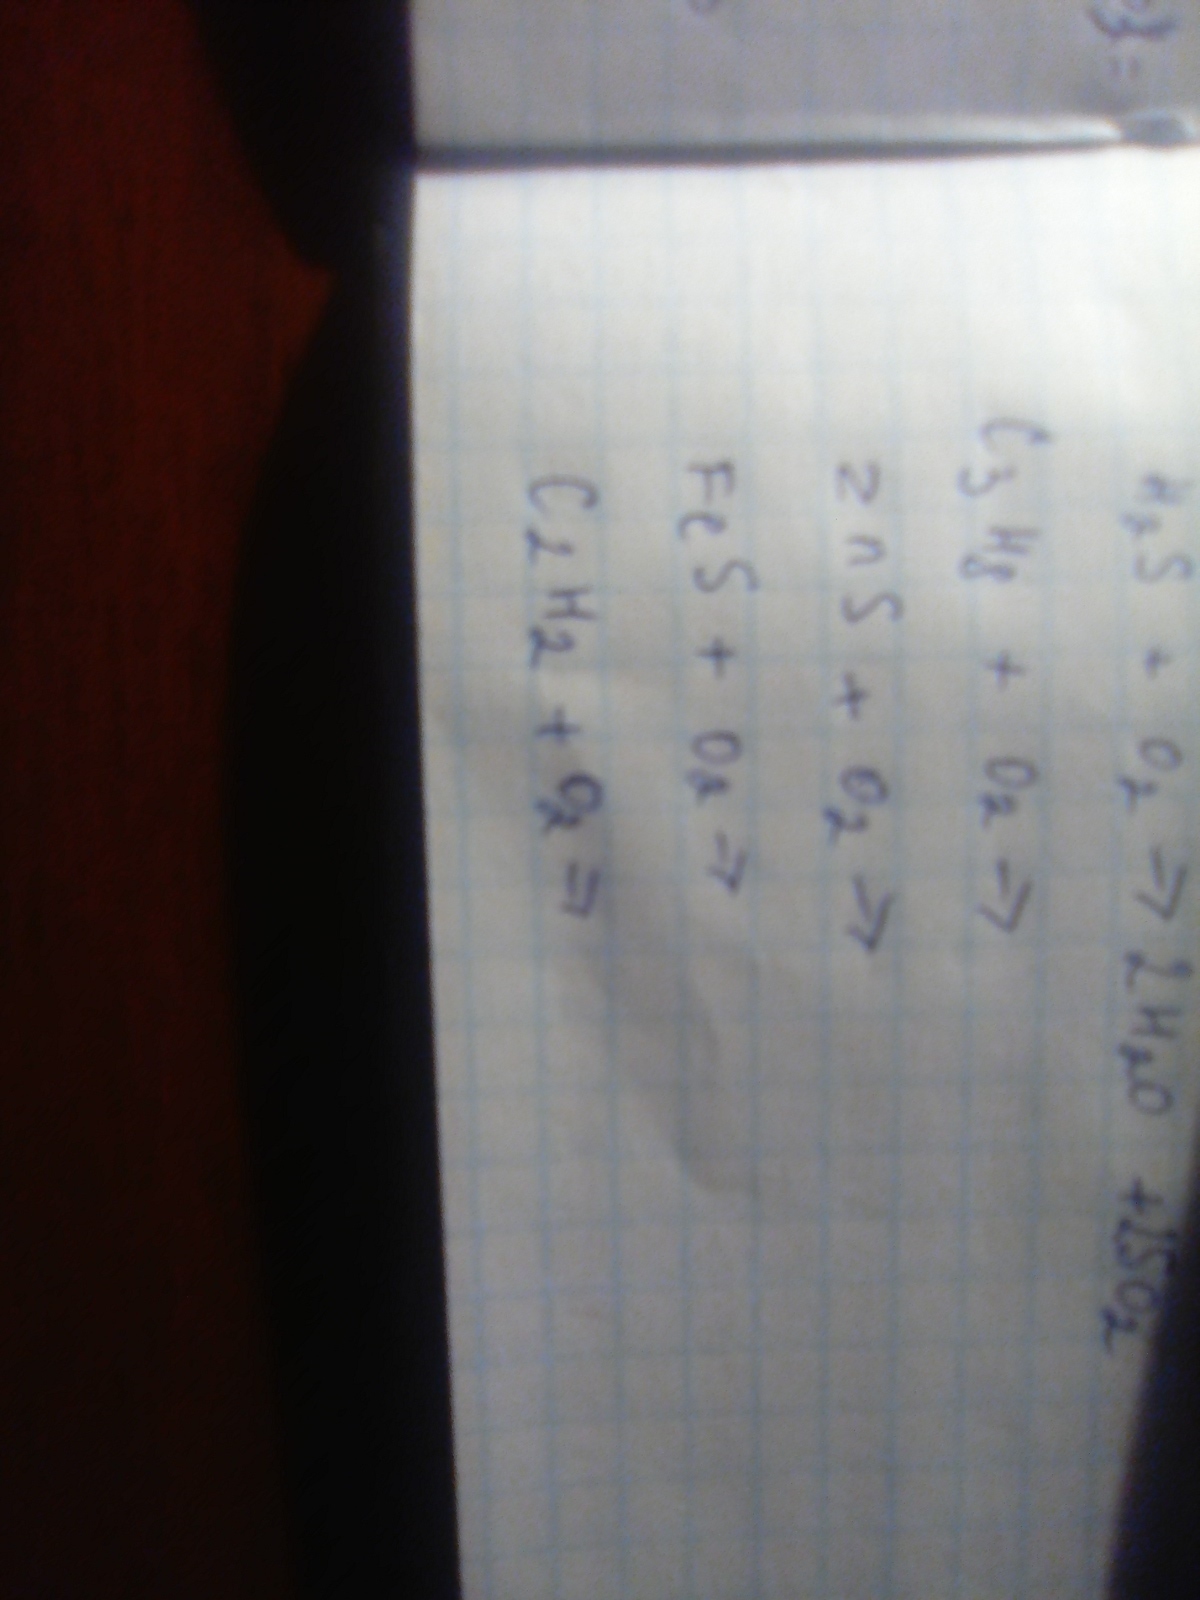 H₂S + O₂ → 2H₂O + 2SO₂
C₃H₈ + O₂ →
ZnS + O₂ →
FeS + O₂ →
C₂H₂ + O₂ →